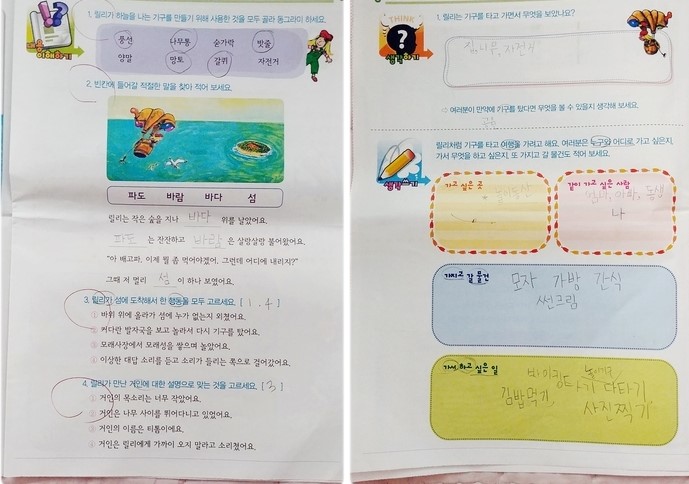 내용
이해하기
1. 릴리가 하늘을 나는 기구를 만들기 위해 사용한 것을 모두 골라 동그라미 하세요.
풍선 나무통 숟가락 밧줄
양말 망토 갈퀴 자전거
2. 빈칸에 들어갈 적절한 말을 찾아 적어 보세요.
파도 바람 바다 섬
릴리는 작은 숲을 지나 바다 위를 날았어요.
파도 는 잔잔하고 바람 은 살랑살랑 불어왔어요.
"아 배고파. 이제 뭘 좀 먹어야겠어. 그런데 어디에 내리지?"
그때 저 멀리 섬 이 하나 보였어요.
3. 릴리가 섬에 도착해서 한 행동을 모두 고르세요. [1, 4]
① 바위 위에 올라가 섬에 누가 없는지 외쳤어요.
② 커다란 발자국을 보고 놀라서 다시 기구를 탔어요.
③ 모래사장에서 모래성을 쌓으며 놀았어요.
④ 이상한 대답 소리를 듣고 소리가 들리는 쪽으로 걸어갔어요.
4. 릴리가 만난 거인에 대한 설명으로 맞는 것을 고르세요. [3]
① 거인의 목소리는 너무 작았어요.
② 거인은 나무 사이를 뛰어다니고 있었어요.
③ 거인의 이름은 티톰이에요.
④ 거인은 릴리에게 가까이 오지 말라고 소리쳤어요.
THINK
?
생각하기
1. 릴리는 기구를 타고 가면서 무엇을 보았나요?
자전거
여러분이 만약에 기구를 탔다면 무엇을 볼 수 있을지 생각해 보세요.
구름
생각쓰기
릴리처럼 기구를 타고 여행을 가려고 해요. 여러분은 누구와 어디로 가고 싶은지,
가서 무엇을 하고 싶은지, 또 가지고 갈 물건도 적어 보세요.
가고 싶은 곳
놀이동산
같이 가고 싶은 사람
엄마, 아빠, 동생
나
가지고 갈 물건
모자 가방 간식
썬크림
가서 하고 싶은 일
바이킹타기 다타기,
김밥먹기, 사진찍기